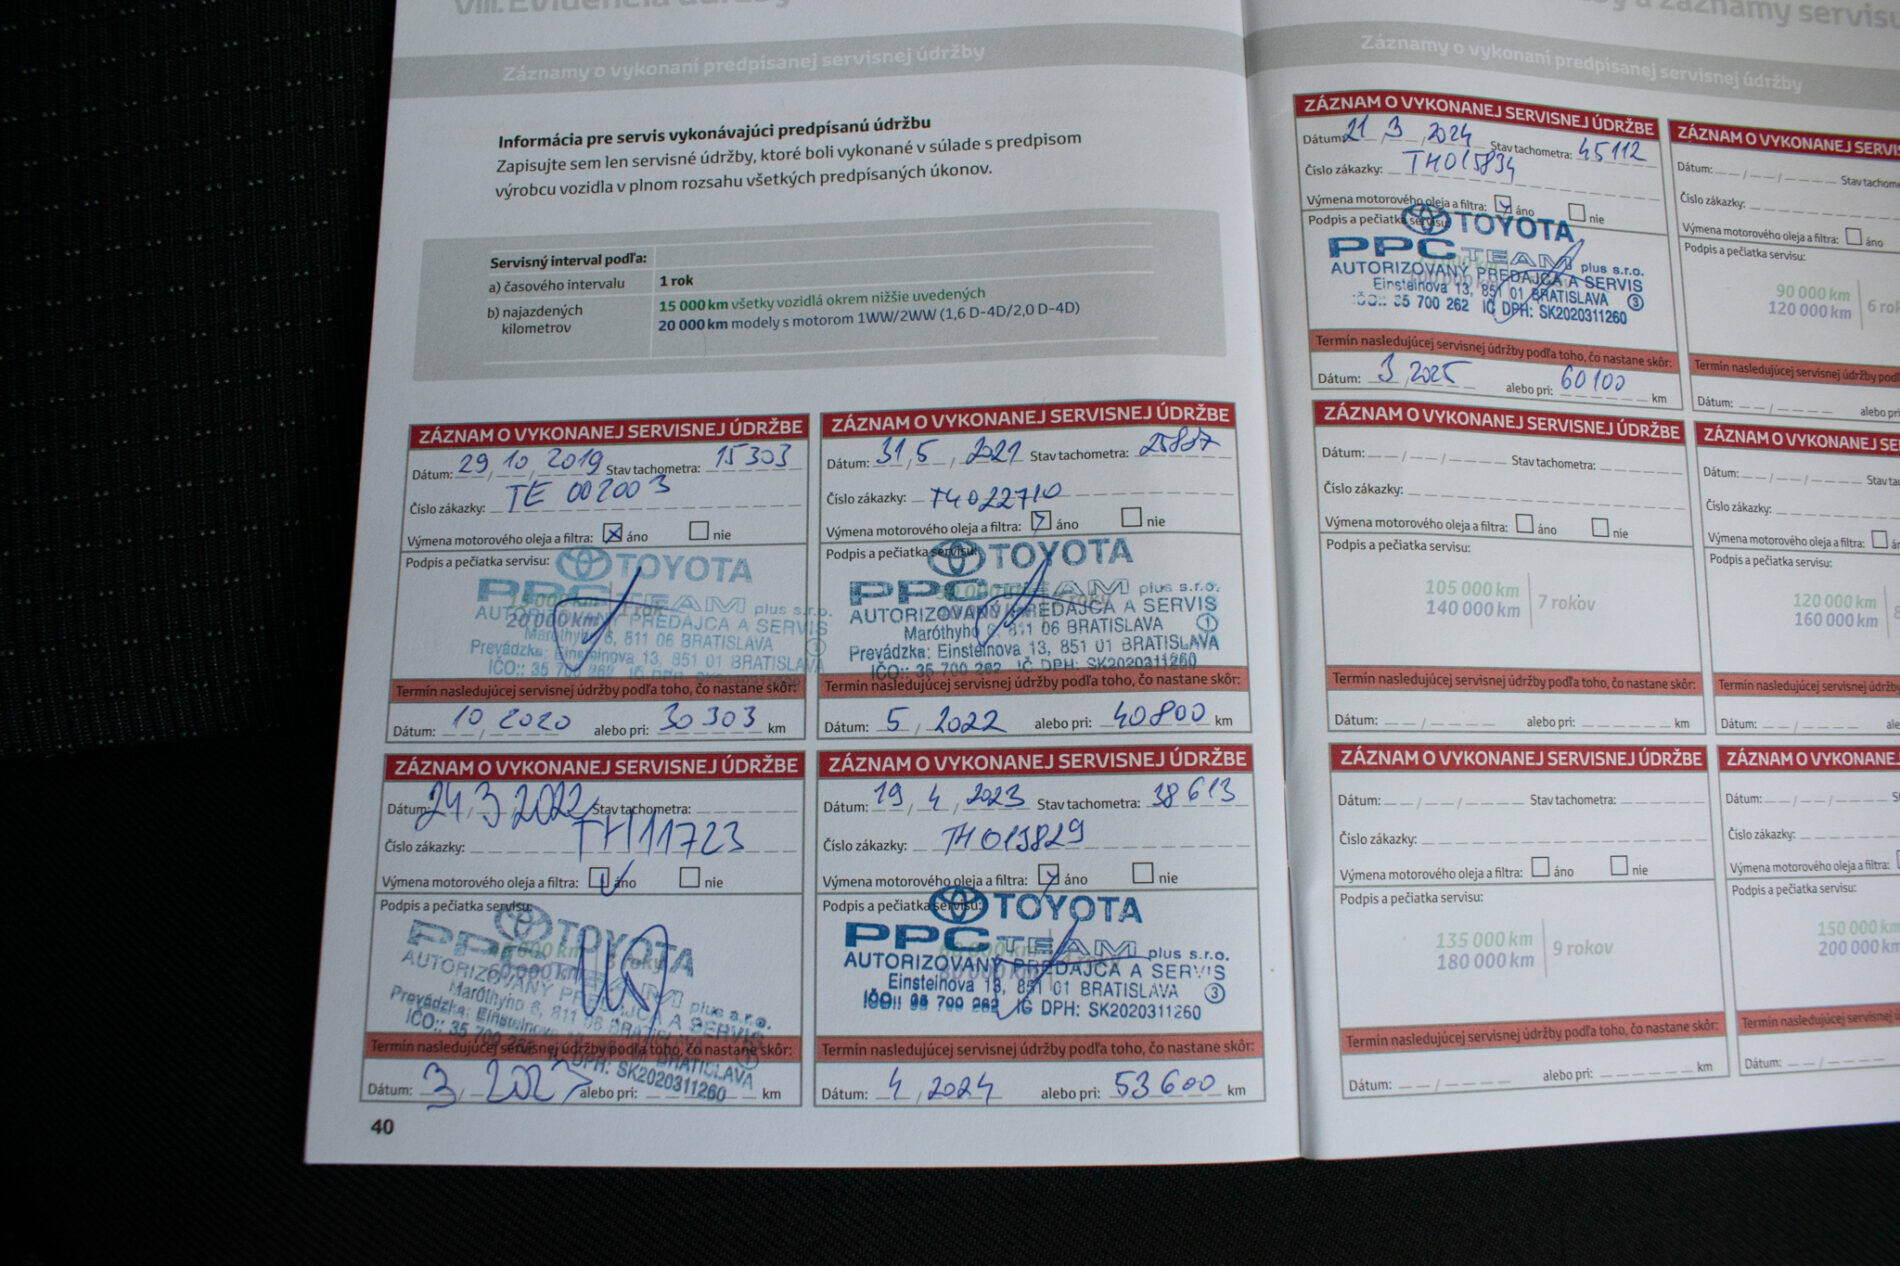 VIII. Evidencia údržby
Záznamy o vykonaní predpísanej servisnej údržby
Informácia pre servis vykonávajúci predpísanú údržbu
Zapisujte sem len servisné údržby, ktoré boli vykonané v súlade s predpisom
výrobcu vozidla v plnom rozsahu všetkých predpísaných úkonov.
Servisný interval podľa:
a) časového intervalu 1 rok
b) najazdených kilometrov
15 000 km všetky vozidlá okrem nižšie uvedených
20 000 km modely s motorom 1WW/2WW (1,6 D-4D/2,0 D-4D)
ZÁZNAM O VYKONANEJ SERVISNEJ ÚDRŽBE
Dátum: 29 / 10 / 2019 Stav tachometra: 15303
Číslo zákazky: TE 002003
Výmena motorového oleja a filtra: áno nie
Podpis a pečiatka servisu:
TOYOTA
PPC TEAM plus s.r.o.
AUTORIZOVANÝ PREDAJCA A SERVIS
20 000 km
Maróthyho 6, 811 06 BRATISLAVA
Prevádzka: Einsteinova 13, 851 01 BRATISLAVA
IČO:: 35 700 262 IČ DPH: SK2020311260
Termín nasledujúcej servisnej údržby podľa toho, čo nastane skôr:
Dátum: 10 / 2020 alebo pri: 30303 km
ZÁZNAM O VYKONANEJ SERVISNEJ ÚDRŽBE
Dátum: 31 / 5 / 2021 Stav tachometra: 25887
Číslo zákazky: T4022710
Výmena motorového oleja a filtra: áno nie
Podpis a pečiatka servisu:
TOYOTA
PPC TEAM plus s.r.o.
AUTORIZOVANÝ PREDAJCA A SERVIS
Maróthyho 6, 811 06 BRATISLAVA 1
Prevádzka: Einsteinova 13, 851 01 BRATISLAVA
IČO:: 35 700 262 IČ DPH: SK2020311260
Termín nasledujúcej servisnej údržby podľa toho, čo nastane skôr:
Dátum: 5 / 2022 alebo pri: 40800 km
ZÁZNAM O VYKONANEJ SERVISNEJ ÚDRŽBE
Dátum: 24 / 3 / 2022 Stav tachometra:
Číslo zákazky: TH11723
Výmena motorového oleja a filtra: áno nie
Podpis a pečiatka servisu:
TOYOTA
PPC TEAM plus s.r.o.
60 000 km
AUTORIZOVANÝ PREDAJCA A SERVIS
Maróthyho 6, 811 06 BRATISLAVA
Prevádzka: Einsteinova
IČO:: 35 700 262 DPH: SK2020311260
Termín nasledujúcej servisnej údržby podľa toho, čo nastane skôr:
Dátum: 3 / 2023 alebo pri: km
ZÁZNAM O VYKONANEJ SERVISNEJ ÚDRŽBE
Dátum: 19 / 4 / 2023 Stav tachometra: 38613
Číslo zákazky: TH013829
Výmena motorového oleja a filtra: áno nie
Podpis a pečiatka servisu:
TOYOTA
PPC TEAM plus s.r.o.
AUTORIZOVANÝ PREDAJCA A SERVIS
Einsteinova 13, 851 01 BRATISLAVA 3
IČO:: 35 700 262 IČ DPH: SK2020311260
Termín nasledujúcej servisnej údržby podľa toho, čo nastane skôr:
Dátum: 4 / 2024 alebo pri: 53600 km
40
záznamy servisu
Záznamy o vykonaní predpísanej servisnej údržby
ZÁZNAM O VYKONANEJ SERVISNEJ ÚDRŽBE
Dátum: 21 / 3 / 2024 Stav tachometra: 45112
Číslo zákazky: TH015834
Výmena motorového oleja a filtra: áno nie
Podpis a pečiatka servisu:
TOYOTA
PPC TEAM plus s.r.o.
AUTORIZOVANÝ PREDAJCA A SERVIS
Einsteinova 13, 851 01 BRATISLAVA 3
IČO:: 35 700 262 IČ DPH: SK2020311260
Termín nasledujúcej servisnej údržby podľa toho, čo nastane skôr:
Dátum: 3 / 2025 alebo pri: 60100 km
ZÁZNAM O VYKONANEJ
Dátum: Stav
Číslo zákazky:
Výmena motorového oleja a filtra: áno
Podpis a pečiatka servisu:
90 000 km
120 000 km
Termín nasledujúcej servisnej údržby
Dátum: alebo
ZÁZNAM O VYKONANEJ SERVISNEJ ÚDRŽBE
Dátum: Stav tachometra:
Číslo zákazky:
Výmena motorového oleja a filtra: áno nie
Podpis a pečiatka servisu:
105 000 km
140 000 km 7 rokov
Termín nasledujúcej servisnej údržby podľa toho, čo nastane skôr:
Dátum: alebo pri: km
ZÁZNAM O VYKONANEJ
Dátum: Stav
Číslo zákazky:
Výmena motorového oleja a filtra:
Podpis a pečiatka servisu:
120 000 km
160 000 km
Termín nasledujúcej servisnej údržby
Dátum:
ZÁZNAM O VYKONANEJ SERVISNEJ ÚDRŽBE
Dátum: Stav tachometra:
Číslo zákazky:
Výmena motorového oleja a filtra: áno nie
Podpis a pečiatka servisu:
135 000 km
180 000 km 9 rokov
Termín nasledujúcej servisnej údržby podľa toho, čo nastane skôr:
Dátum: alebo pri: km
ZÁZNAM O VYKONANEJ
Dátum:
Číslo zákazky:
Výmena motorového oleja a filtra:
Podpis a pečiatka servisu:
150 000 km
200 000 km
Termín nasledujúcej servisnej
Dátum: